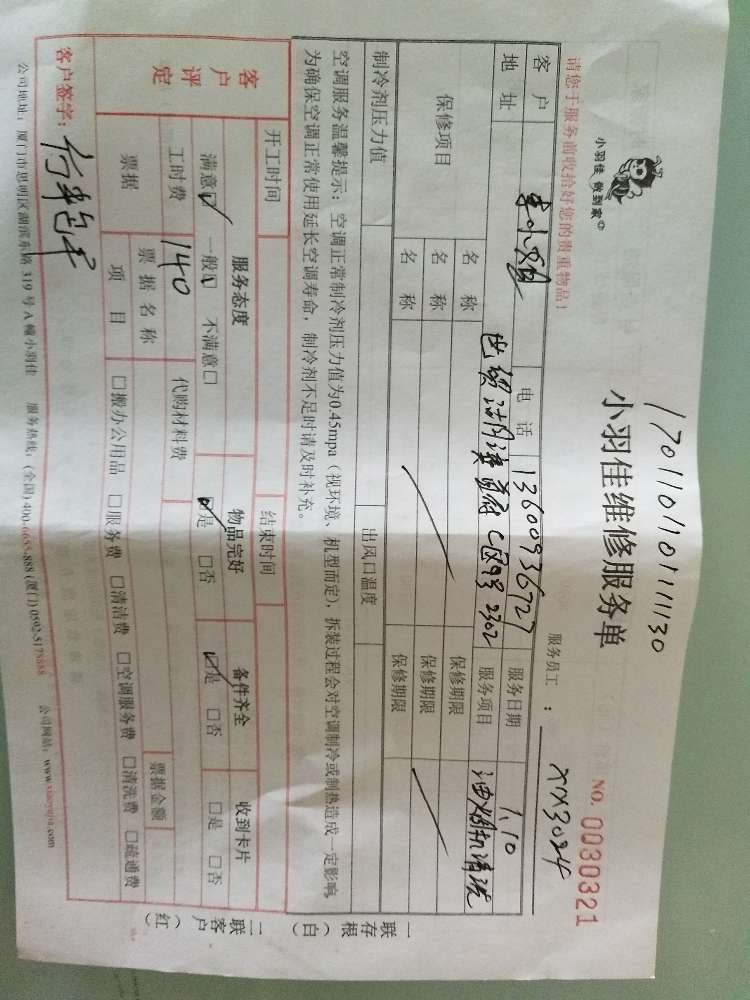 17011011011111130
小羽佳 做到家
小羽佳维修服务单
NO. 0030321
请您于服务前收拾好您的贵重物品!
服务员工 : XX3024
客 户 电 话 13600936727 服务日期 1.10
地 址 C区9号 2302 服务项目 油烟机清洗
保修项目 名 称 保修期限
名 称 保修期限
名 称 保修期限
制冷剂压力值 出风口温度
空调服务温馨提示:空调正常制冷剂压力值为0.45mpa(视环境、机型而定),拆装过程会对空调制冷或制热造成一定影响,
为确保空调正常使用延长空调寿命,制冷剂不足时请及时补充。
开工时间 结束时间
客户评定 服务态度 物品完好 备件齐全 收到卡片
满意☑ 一般☐ 不满意☐ ☑是 ☐否 ☑是 ☐否 ☐是 ☐否
工时费 140 代购材料费
票据 票据名称 票据金额
项 目 ☐搬办公用品 ☐服务费 ☐清洁费 ☐空调服务费 ☐清洗费 ☐疏通费
客户签字:
公司地址:厦门市思明区湖滨东路 319 号 A 幢小羽佳 服务热线:(全国) 400-6655-888 (厦门) 0592-5178888 公司网站:www.xiaoyujia.com
一联存根(白)
二联客户(红)